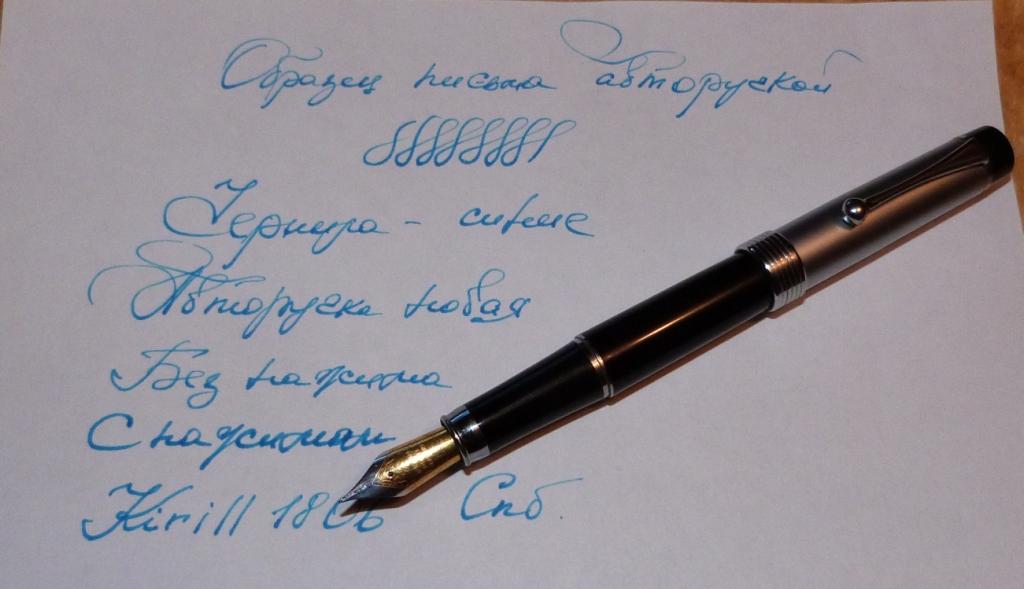 Образец письма авторучкой
Чернила - синие
Авторучка новая
Без нажима
С нажимом
Kirill 1806 Спб.